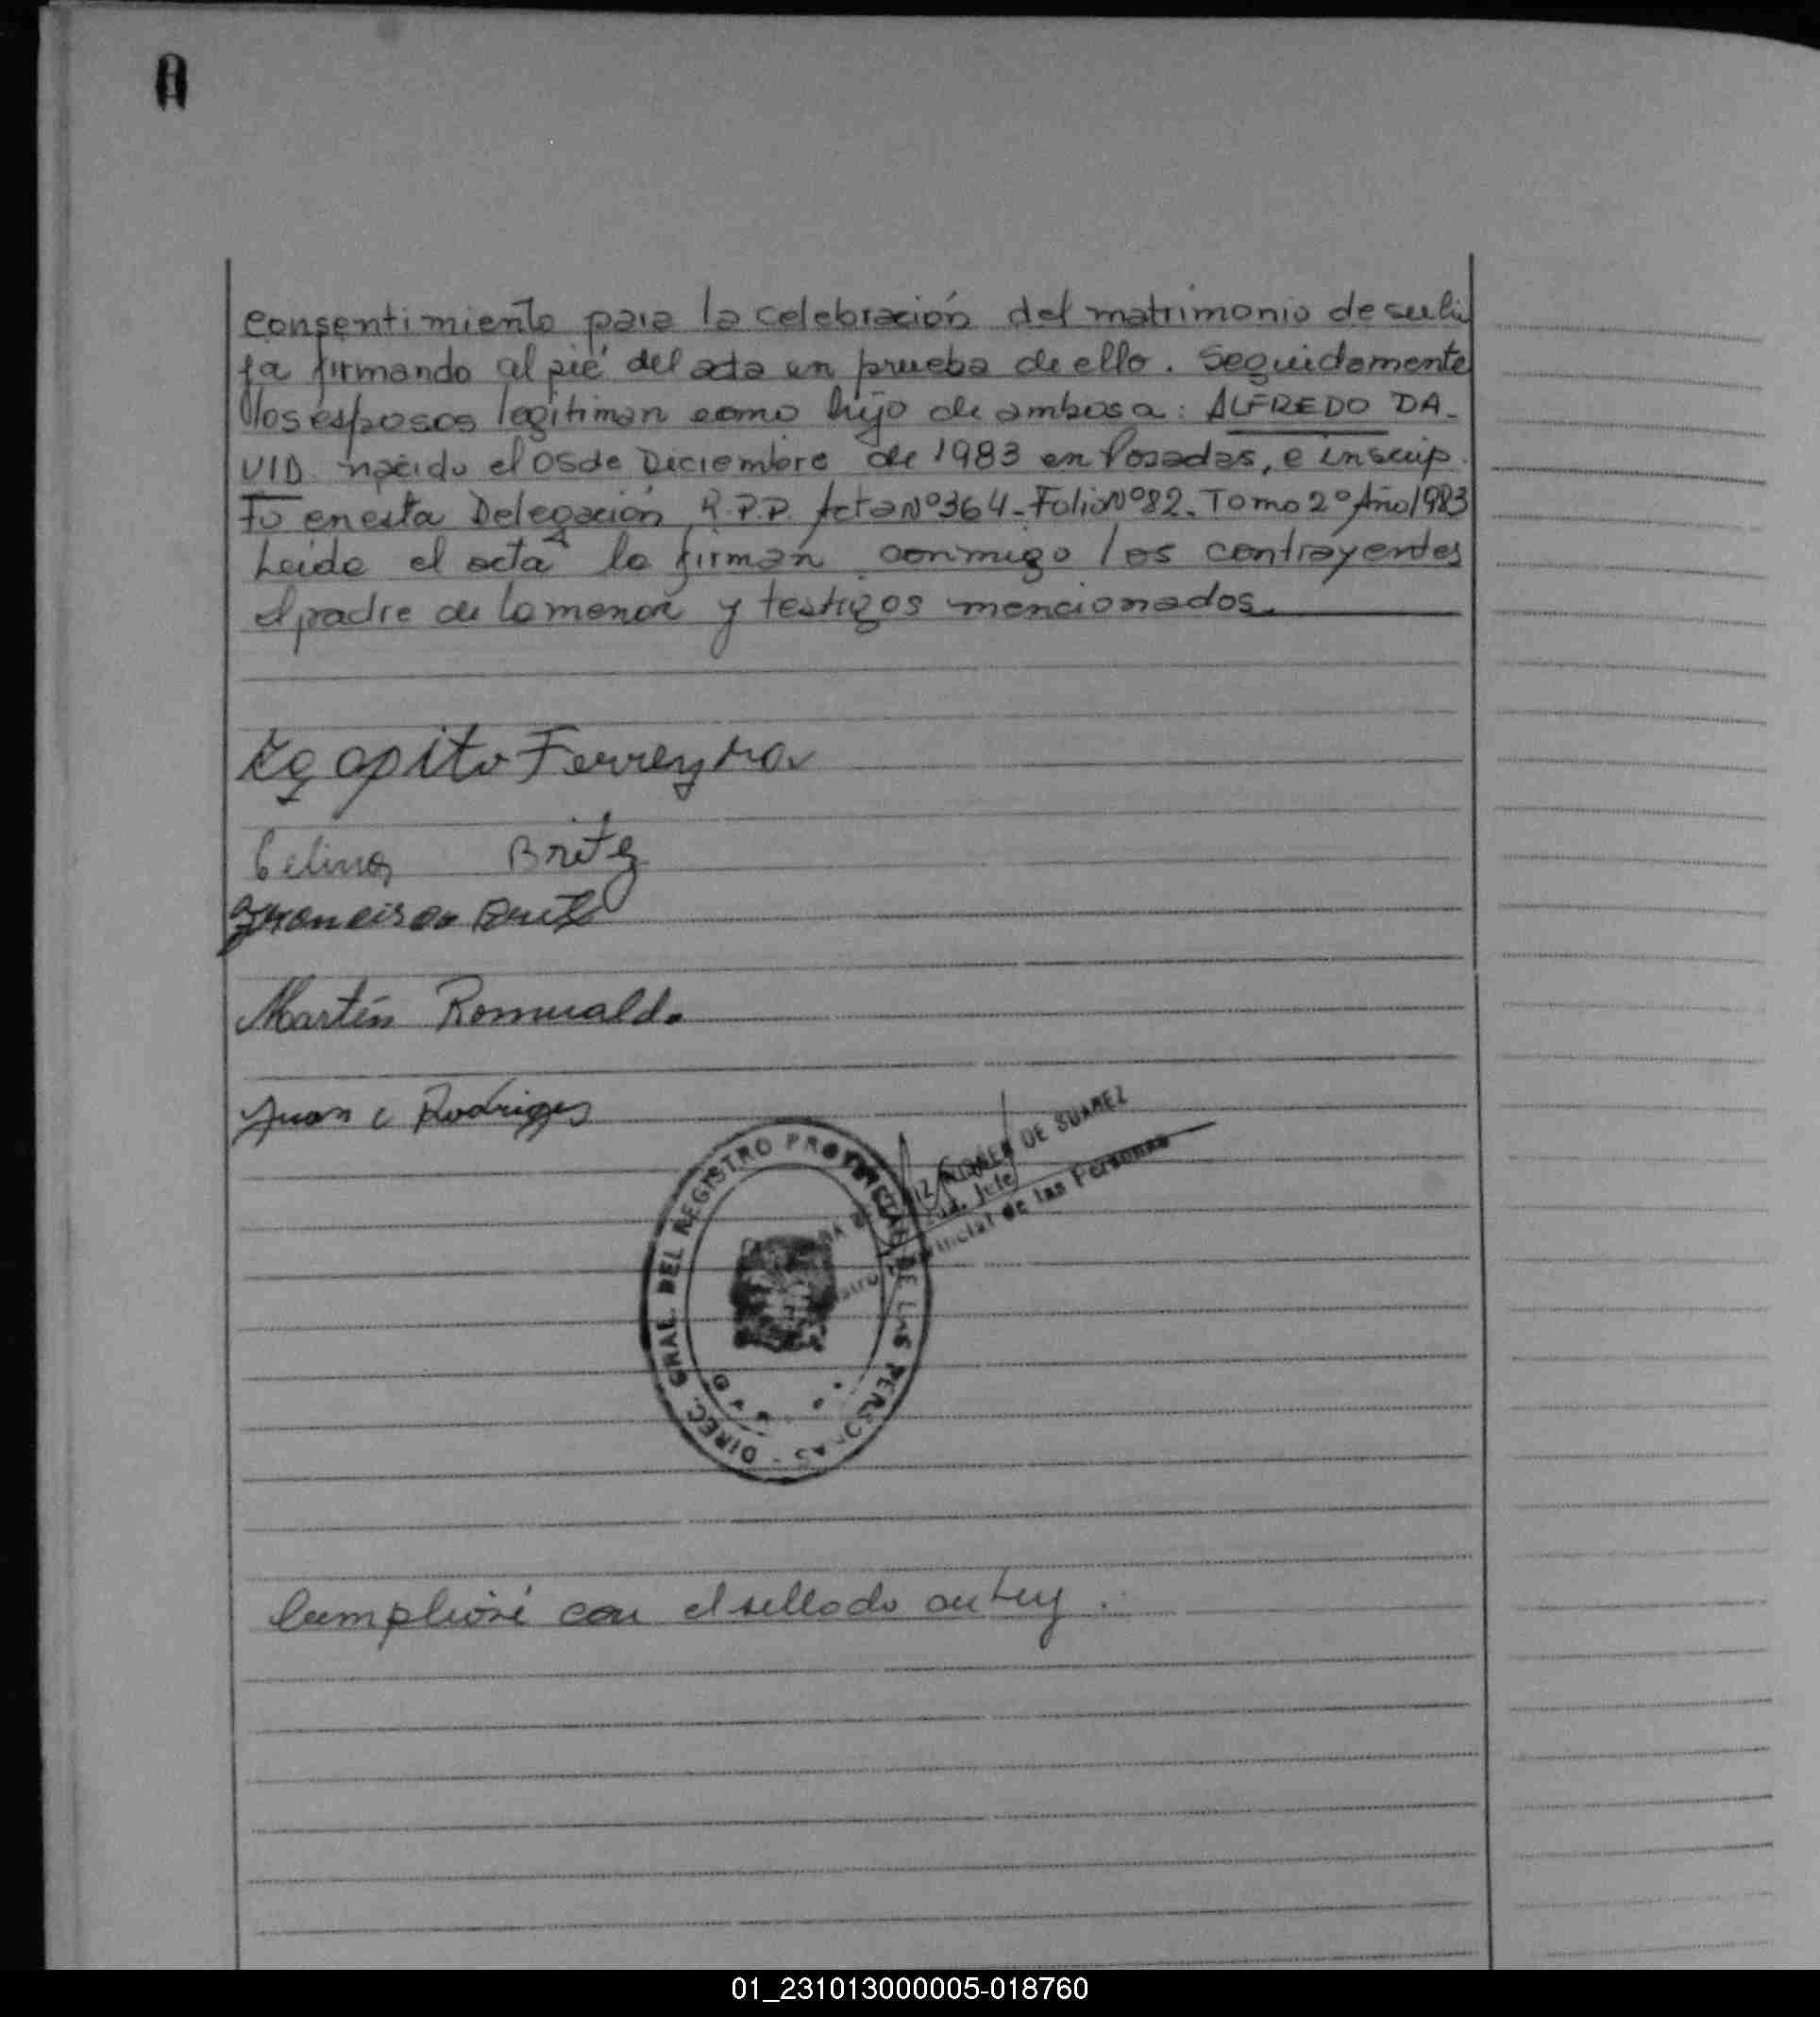 consentimiento para la celebración del matrimonio de su hi
ja firmando al pié del acta en prueba de ello. Seguidamente
los esposos legitiman como hijo de ambos a: ALFREDO DA-
VID nacido el 05 de Diciembre de 1983 en Posadas, e inscrip
to en esta Delegación R.P.P. Acta Nº 364 - Folio Nº 82 - Tomo 2º Año 1983
Leida el acta la firman conmigo los contrayentes
el padre de la menor y testigos mencionados.
Agapito Ferreyra
Celina Britez
Francisco Britez
Martín Romualdo
Juan C Rodrigues
DE SUAREZ
Jefe
de las Personas
DIREC. GRAL. DEL REGISTRO PROVINCIAL DE LAS PERSONAS
Cumpliose con el sellado de Ley.
01_231013000005-018760